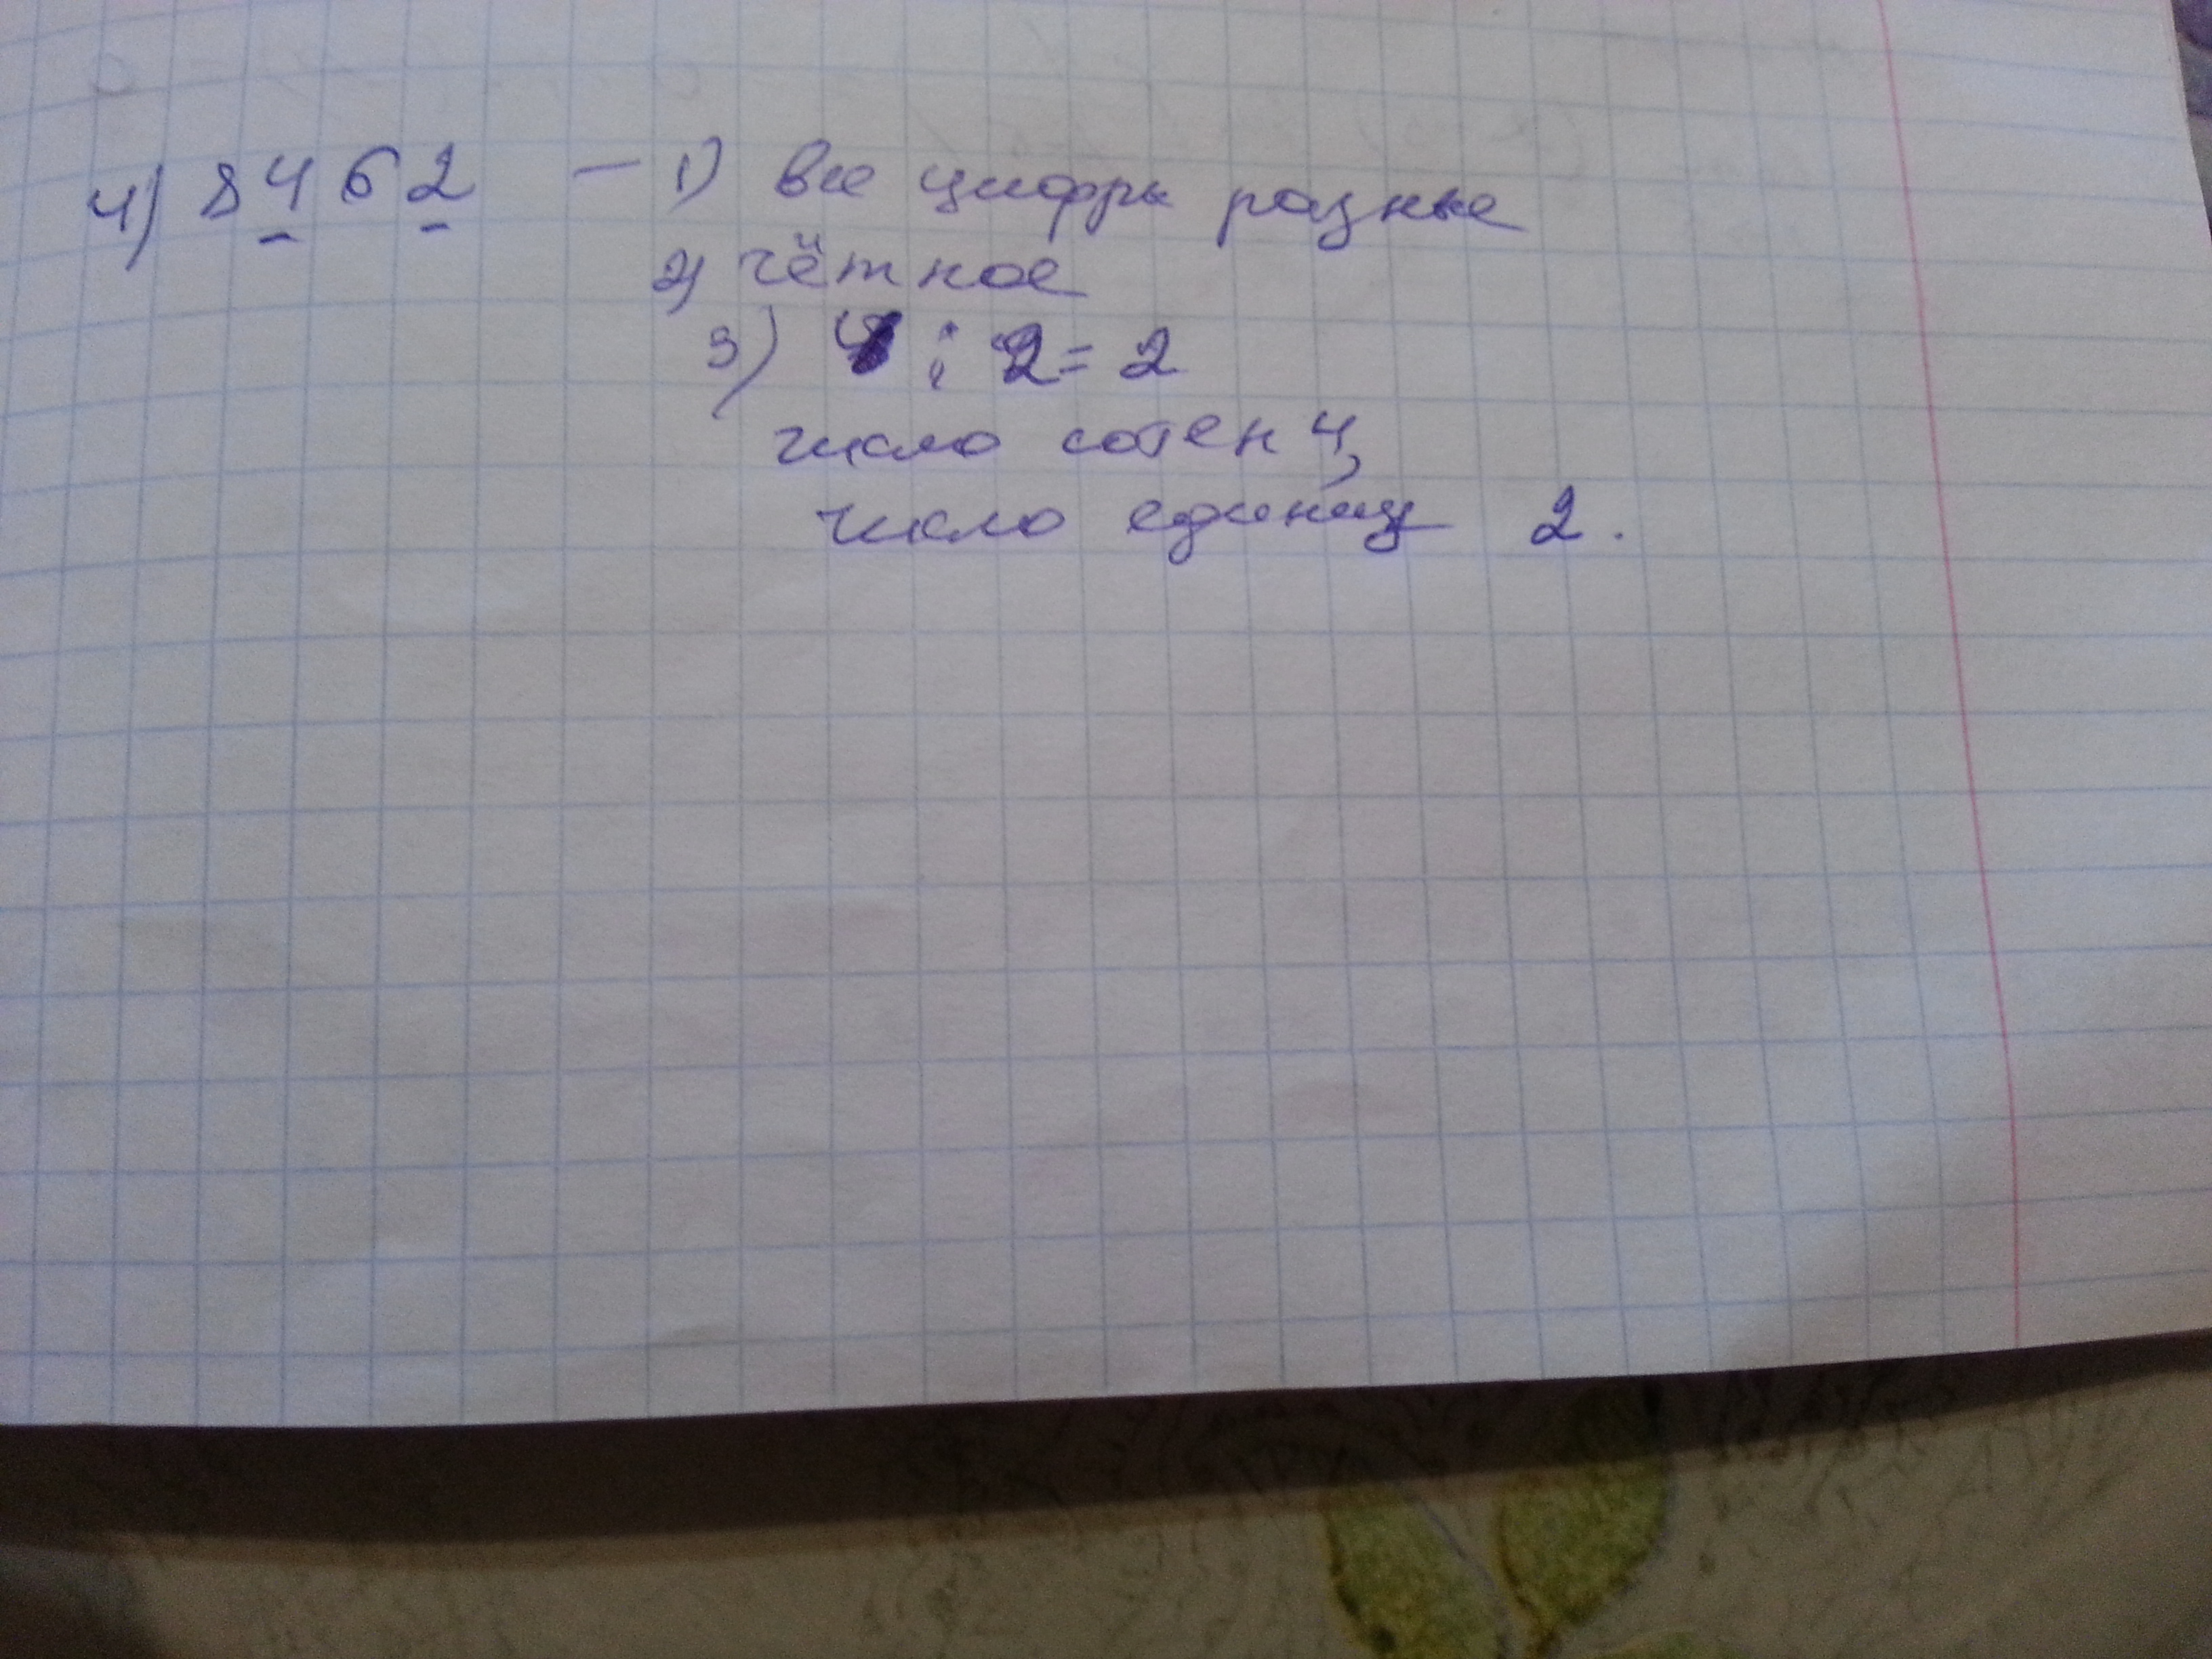 4) 8462 — 1) все цифры разные
2) чётное
3) 4 : 2 = 2
число сотен 4,
число единиц 2.